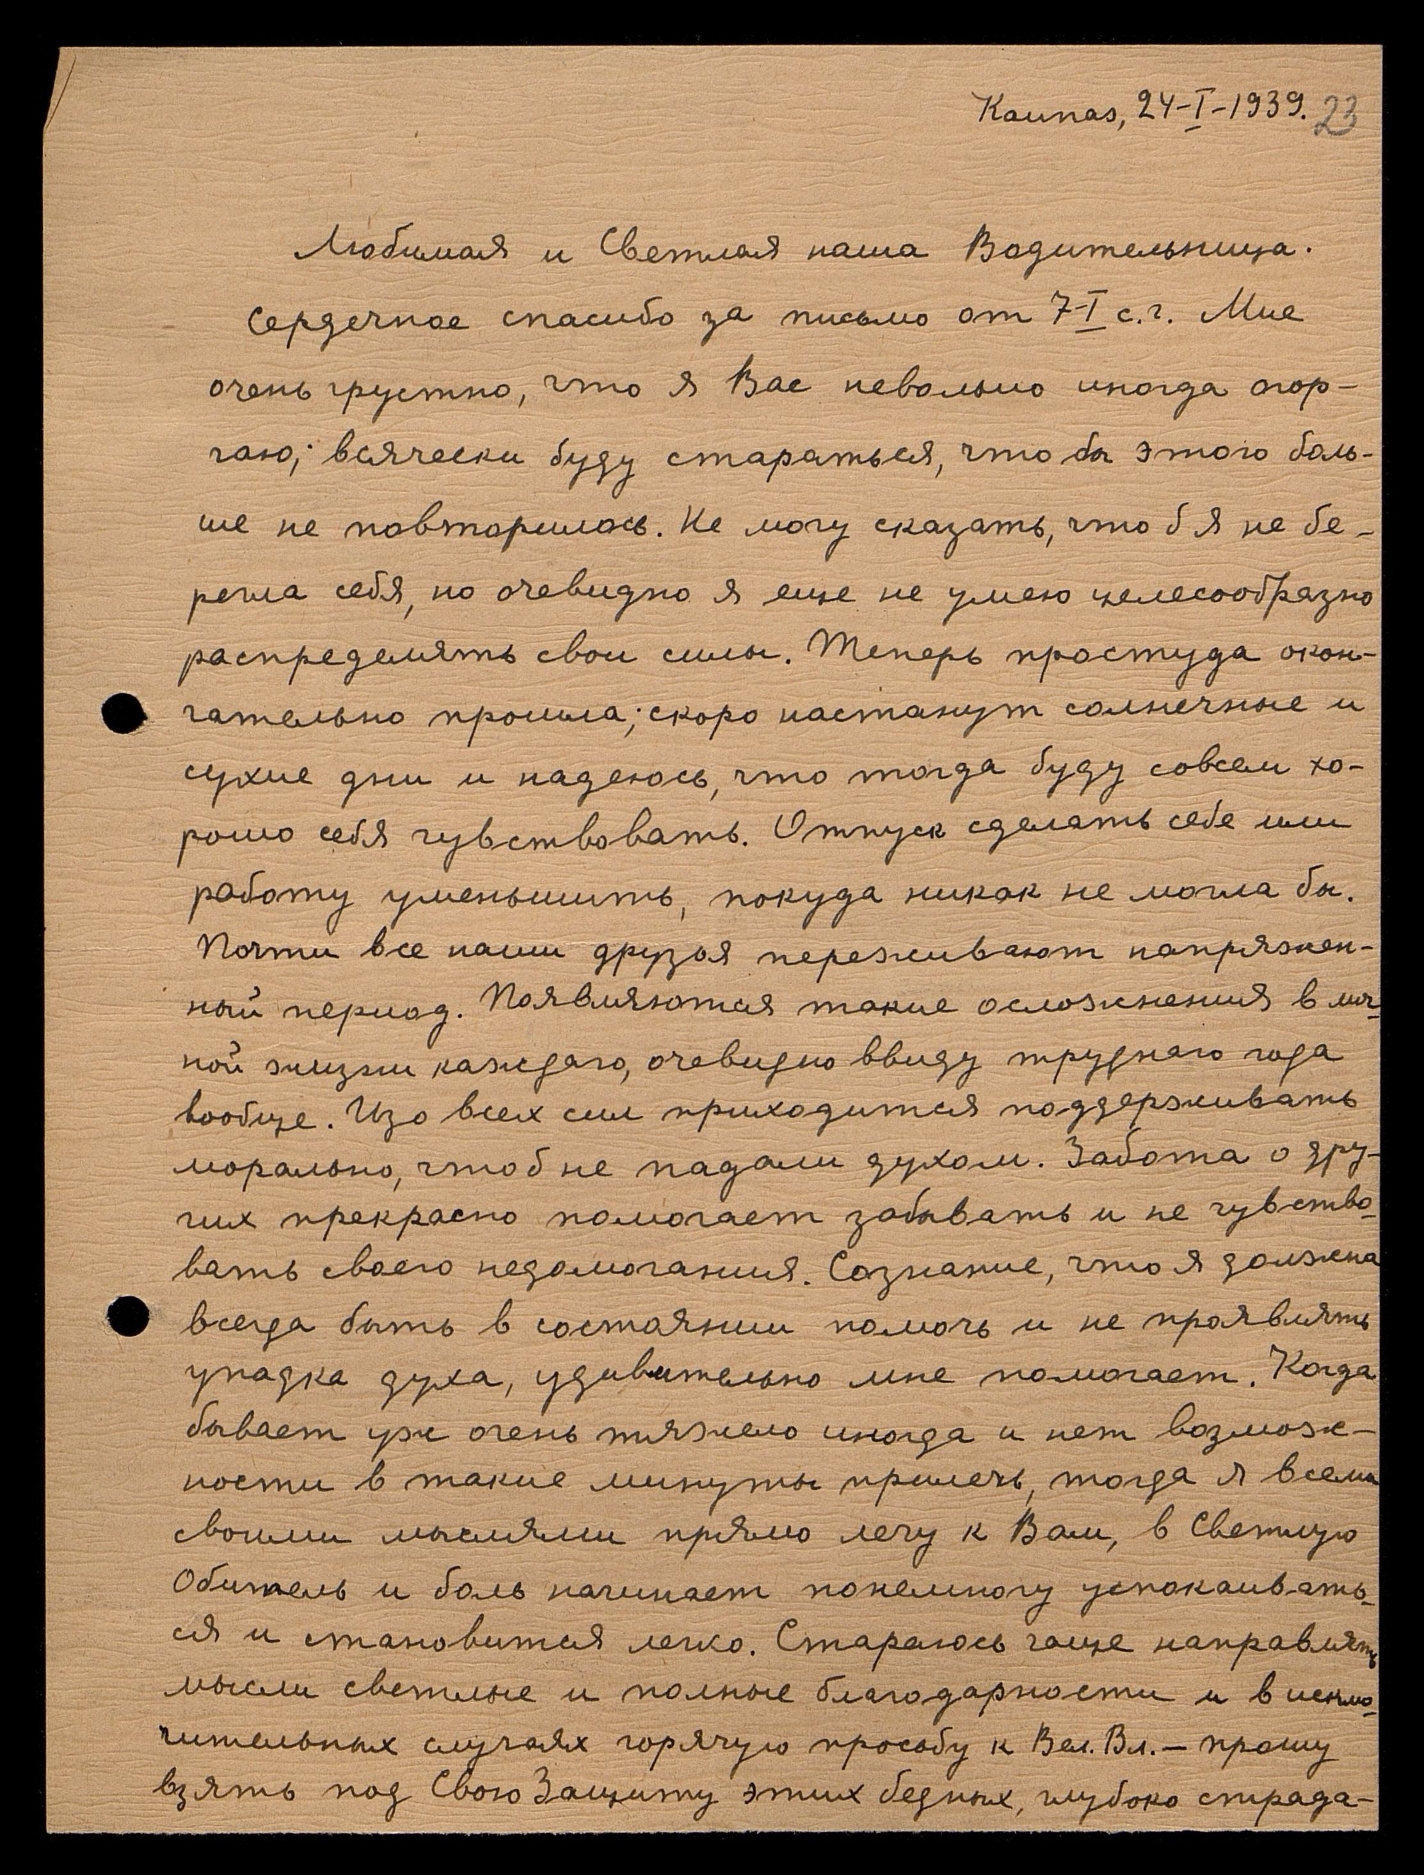 Kaunas, 24-I-1939. 23
Любимая и Светлая наша Водительница.
Сердечное спасибо за письмо от 7-I с.г. Мне
очень грустно, что я Вас невольно иногда огор-
чаю; всячески буду стараться, что бы этого боль-
ше не повторилось. Не могу сказать, что б я не бе-
регла себя, но очевидно я еще не умею целесообразно
распределять свои силы. Теперь простуда окон-
чательно прошла; скоро настанут солнечные и
сухие дни и надеюсь, что тогда буду совсем хо-
рошо себя чувствовать. Отпуск сделать себе или
работу уменьшить, покуда никак не могла бы.
Почти все наши друзья переживают напряжен-
ный период. Появляются такие осложнения в лич-
ной жизни каждаго, очевидно ввиду труднаго года
вообще. Изо всех сил приходится поддерживать
морально, чтоб не падали духом. Забота о дру-
гих прекрасно помогает забывать и не чувство-
вать своего недомогания. Сознание, что я должна
всегда быть в состоянии помочь и не проявлять
упадка духа, удивительно мне помогает. Когда
бывает уж очень тяжело иногда и нет возмож-
ности в такие минуты прилечь, тогда я всеми
своими мыслями прямо лечу к Вам, в Светлую
Обитель и боль начинает понемногу успокаивать-
ся и становится легко. Стараюсь чаще направлять
мысли светлые и полные благодарности и в исклю-
чительных случаях горячую просьбу к Вел. Вл. — прошу
взять под Свою Защиту этих бедных, глубоко страда-